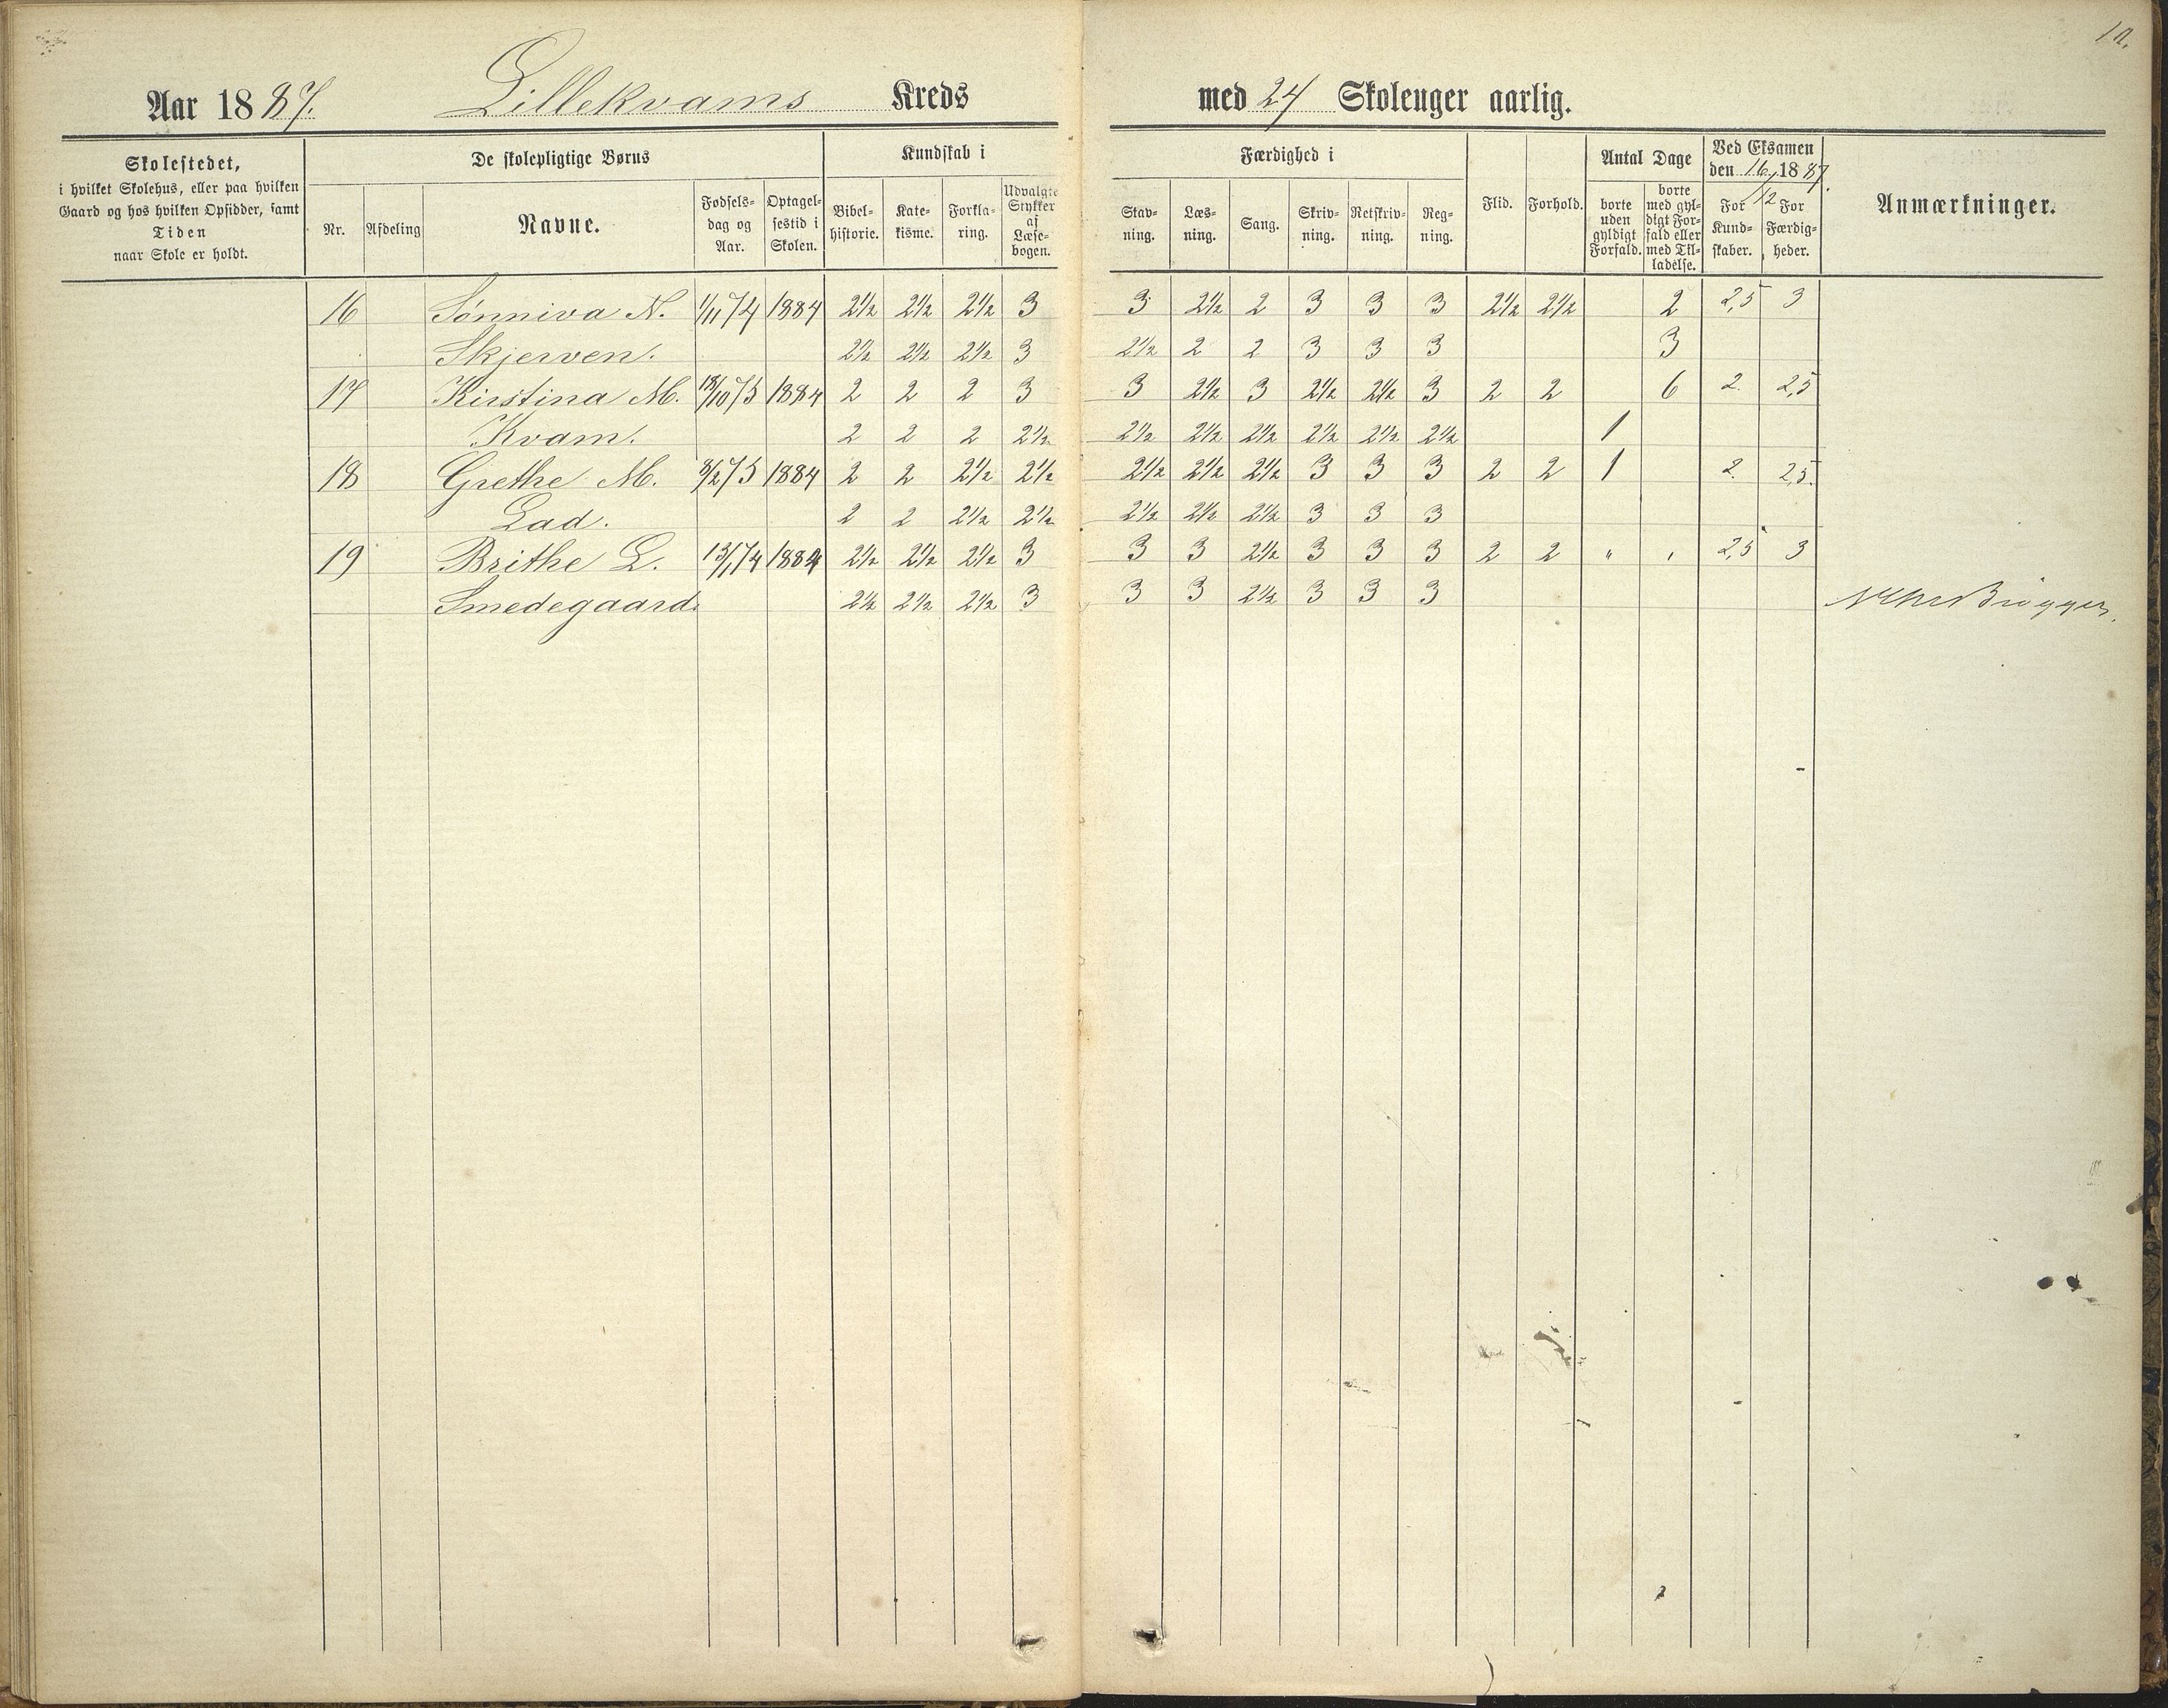 10.
Aar 1887. Lillekvams Kreds med 24 Skoleuger aarlig.
Skolestedet,
i hvilket Skolehus, eller paa hvilken
Gaard og hos hvilken Opsidder, samt
Tiden
naar Skole er holdt.
De skolepligtige Børns
Nr.
Afdeling
Navne.
Fødsels-
dag og
Aar.
Optagel-
sestid i
Skolen.
Kundskab i
Bibel-
historie.
Kate-
kisme.
Forkla-
ring.
Udvalgte
Stykker
af
Læse-
bogen.
Færdighed i
Stav-
ning.
Læs-
ning.
Sang.
Skriv-
ning.
Retskriv-
ning.
Reg-
ning.
Flid.
Forhold.
Antal Dage
borte
uden
gyldigt
Forfald.
borte
med gyl-
digt For-
fald eller
med Til-
ladelse.
Ved Eksamen
den 16/12 1887.
For
Kund-
skaber.
For
Færdig-
heder.
Anmærkninger.
16 Sønniva N. 1/11 74 1884 2½ 2½ 2½ 3 3 2½ 2 3 3 3 2½ 2½ 2 2,5 3
Skjerven. 2½ 2½ 2½ 3 2½ 2 2 3 3 3 3
17 Kirstina M. 18/10 75 1884 2 2 2 3 3 2½ 3 2½ 2½ 3 2 2 6 2. 2,5
Kvam. 2 2 2 2½ 2½ 2½ 2½ 2½ 2½ 2½ 1
18 Grethe M. 8/2 75 1884 2 2 2½ 2½ 2½ 2½ 2½ 3 3 3 2 2 1 2. 2,5.
Lad. 2 2 2½ 2½ 2½ 2½ 2½ 3 3 3
19 Brithe L. 13/1 74 1884 2½ 2½ 2½ 3 3 3 2½ 3 3 3 2 2 " , 2,5 3
Smedegaard. 2½ 2½ 2½ 3 3 3 2½ 3 3 3 Brügger.